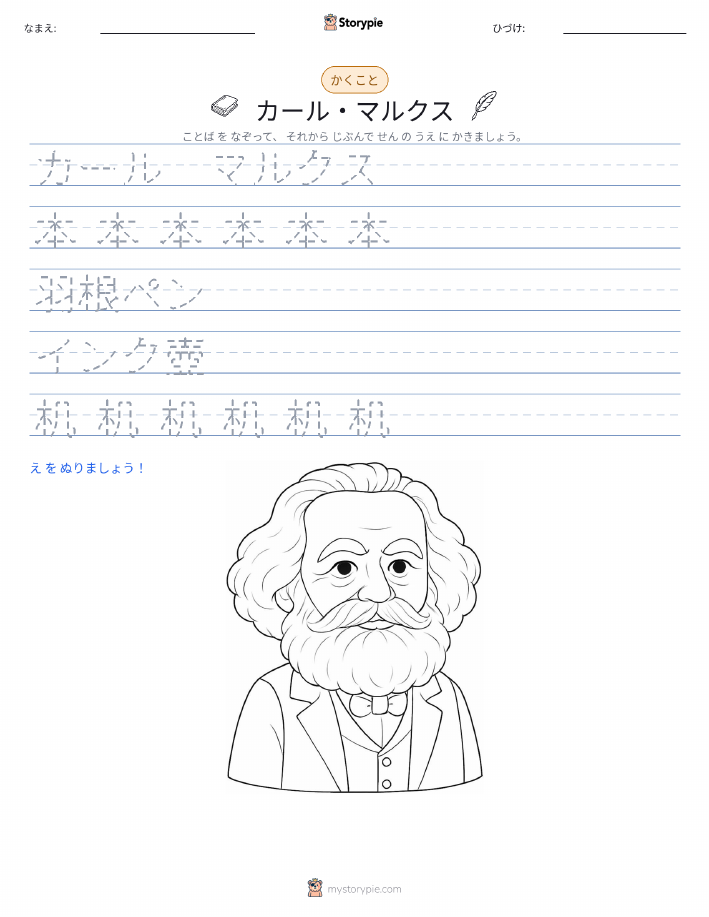 なまえ:
Storypie
ひづけ:
かくこと
カール・マルクス
ことば を なぞって、 それから じぶんで せん の うえ に かきましょう。
カール マルクス
本 本 本 本 本 本
羽根ペン
インク壺
机 机 机 机 机 机
え を ぬりましょう！
mystorypie.com